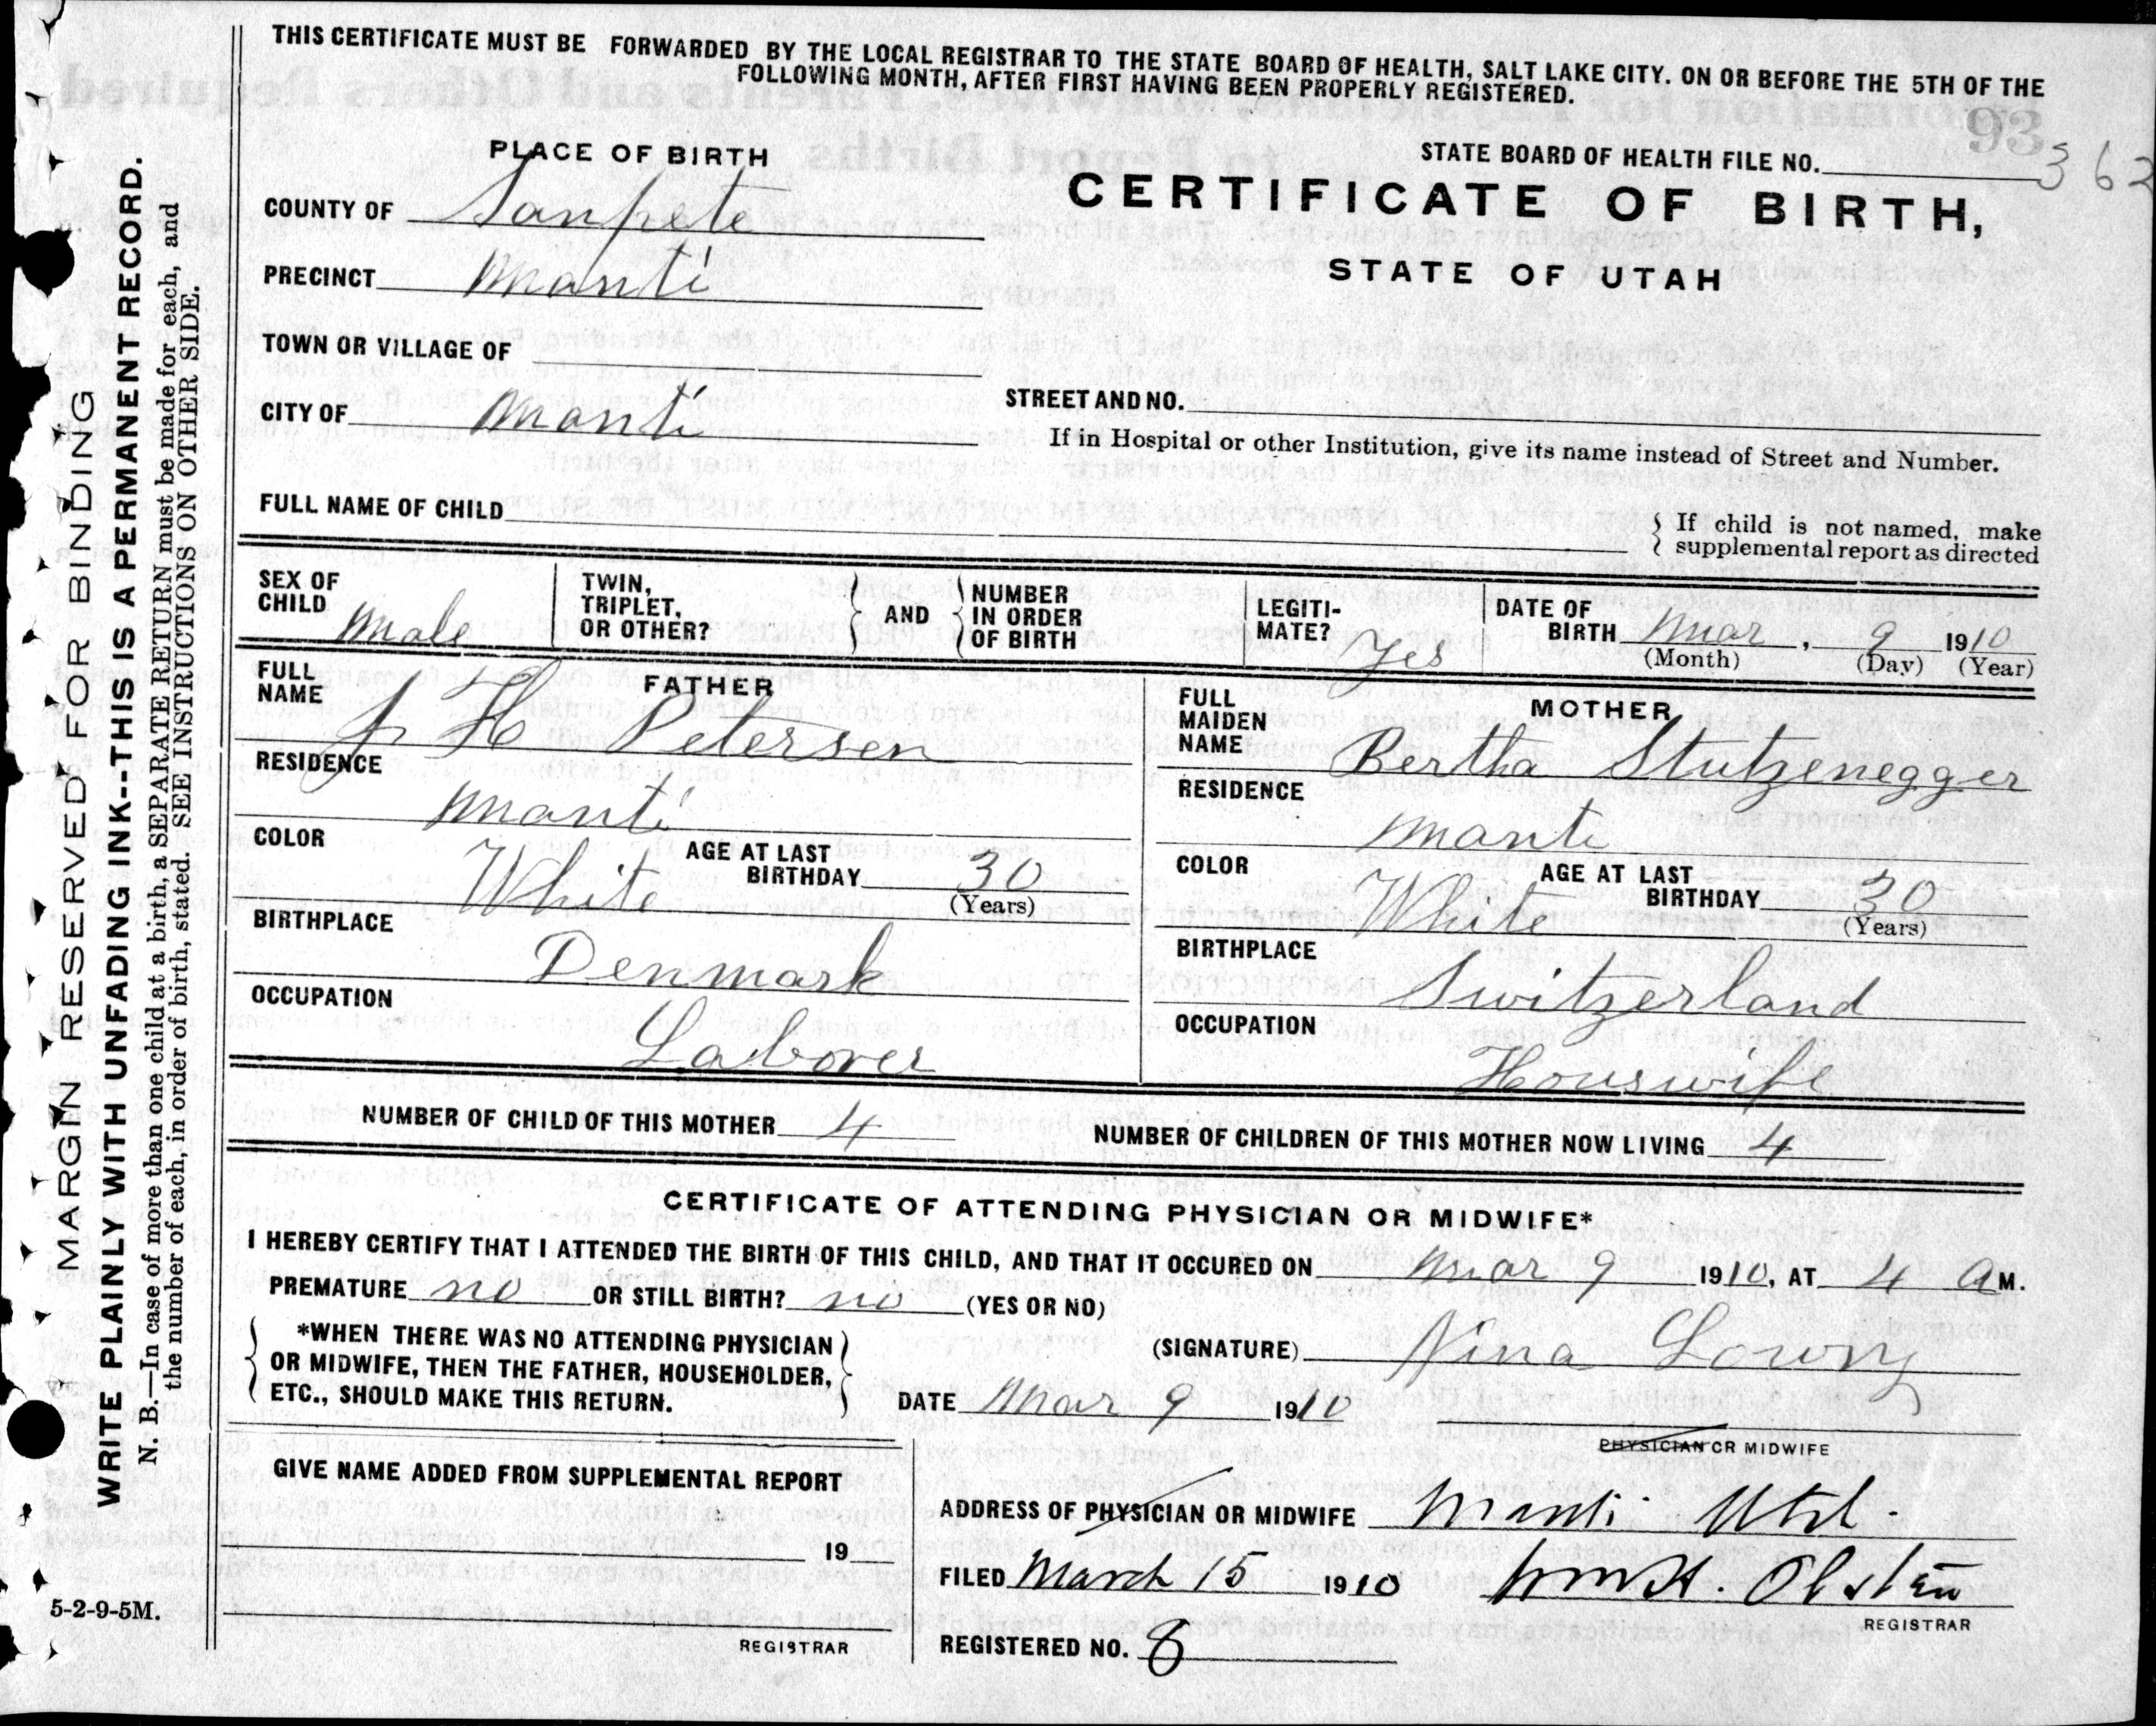 THIS CERTIFICATE MUST BE FORWARDED BY THE LOCAL REGISTRAR TO THE STATE BOARD OF HEALTH, SALT LAKE CITY. ON OR BEFORE THE 5TH OF THE
FOLLOWING MONTH, AFTER FIRST HAVING BEEN PROPERLY REGISTERED.
MARGIN RESERVED FOR BINDING
WRITE PLAINLY WITH UNFADING INK--THIS IS A PERMANENT RECORD.
N. B.—In case of more than one child at a birth, a SEPARATE RETURN must be made for each, and
the number of each, in order of birth, stated. SEE INSTRUCTIONS ON OTHER SIDE.
93
PLACE OF BIRTH
STATE BOARD OF HEALTH FILE NO. 362
COUNTY OF Sanpete
CERTIFICATE OF BIRTH,
PRECINCT Manti
STATE OF UTAH
TOWN OR VILLAGE OF
CITY OF Manti
STREET AND NO.
If in Hospital or other Institution, give its name instead of Street and Number.
FULL NAME OF CHILD
If child is not named, make
supplemental report as directed
SEX OF CHILD Male
TWIN, TRIPLET, OR OTHER?
AND
NUMBER IN ORDER OF BIRTH
LEGITI-MATE? Yes
DATE OF BIRTH Mar, 9 1910
(Month) (Day) (Year)
FATHER
FULL NAME J H Petersen
RESIDENCE
Manti
COLOR White
AGE AT LAST BIRTHDAY 30
(Years)
BIRTHPLACE
Denmark
OCCUPATION
Laborer
MOTHER
FULL MAIDEN NAME Bertha Stutzenegger
RESIDENCE
Manti
COLOR White
AGE AT LAST BIRTHDAY 30
(Years)
BIRTHPLACE
Switzerland
OCCUPATION
Houswife
NUMBER OF CHILD OF THIS MOTHER 4
NUMBER OF CHILDREN OF THIS MOTHER NOW LIVING 4
CERTIFICATE OF ATTENDING PHYSICIAN OR MIDWIFE*
I HEREBY CERTIFY THAT I ATTENDED THE BIRTH OF THIS CHILD, AND THAT IT OCCURED ON Mar 9 1910, AT 4 A M.
PREMATURE no OR STILL BIRTH? no (YES OR NO)
*WHEN THERE WAS NO ATTENDING PHYSICIAN
OR MIDWIFE, THEN THE FATHER, HOUSEHOLDER,
ETC., SHOULD MAKE THIS RETURN.
(SIGNATURE) Nina Lowry
DATE Mar 9 1910
PHYSICIAN OR MIDWIFE
GIVE NAME ADDED FROM SUPPLEMENTAL REPORT
19
REGISTRAR
ADDRESS OF PHYSICIAN OR MIDWIFE Manti Utah.
FILED March 15 1910 Wm H. Olsten
REGISTRAR
REGISTERED NO. 8
5-2-9-5M.